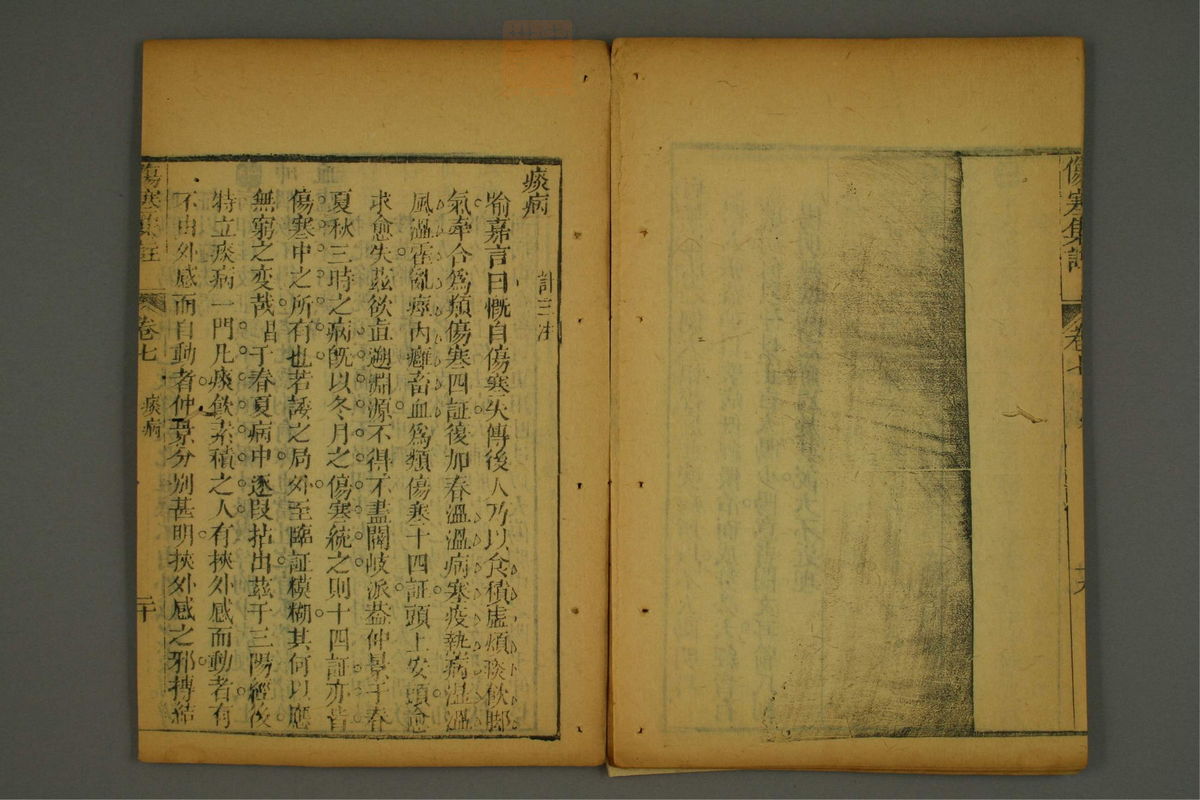 傷寒集註
卷七
十九
痰病
計三法
喻嘉言曰慨自傷寒失傳後人乃以食積虛煩痰飲脚
氣牽合爲類傷寒四証後加春溫溫病寒疫熱病濕溫
風溫霍亂痙內癰畜血爲類傷寒十四証頭上安頭愈
求愈失茲欲直遡淵源不得不盡闢岐派葢仲景于春
夏秋三時之病旣以冬月之傷寒統之則十四証亦皆
傷寒中之所有也若諉之局外至臨証糢糊其何以應
無窮之变哉昌于春夏病中逐段拈出茲于三陽經後
特立痰病一門凡痰飲素積之人有挾外感而動者有
不由外感而自動者仲景分别甚明挾外感之邪搏結
傷寒集註
卷七
痰病
二十